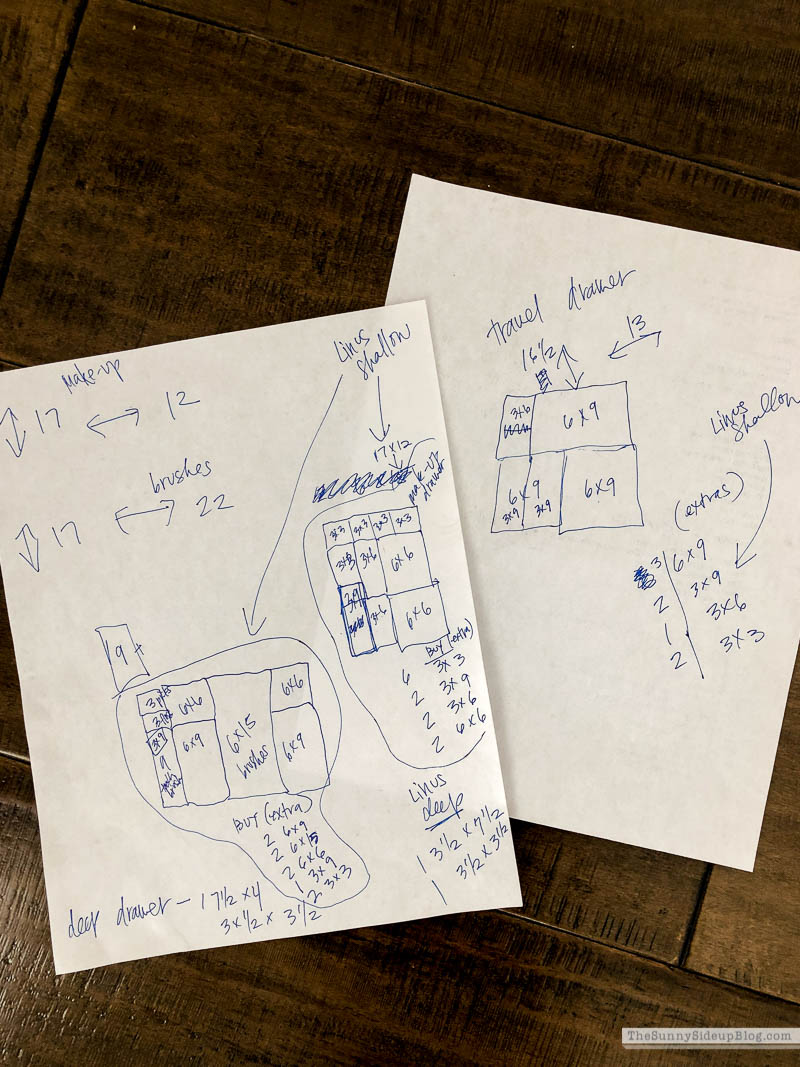 make-up
17 12
brushes
17 22
Linus
Shallow
17x12
make-up
drawer
3x3 3x3 3x3 3x3
3x3 3x6 6x6
3x9
3x6 6x6
BUY (extra)
6 3x3
2 3x9
2 3x6
2 6x6
9+
6x6 6x15 6x6
brushes
3x9 6x9 6x9
9
BUY (extra)
2 6x9
2 6x15
2 6x6
1 3x9
2 3x3
Linus
deep
1 3 1/2 x 7 1/2
1 3 1/2 x 3 1/2
deep drawer - 17 1/2 x 4
3 x 1/2 x 3 1/2
travel drawer
16 1/2 13
3x6 6x9
6x9 6x9
3x9 3x9
Linus
Shallow
(extras)
3 6x9
2 3x9
1 3x6
2 3x3
TheSunnySideupBlog.com